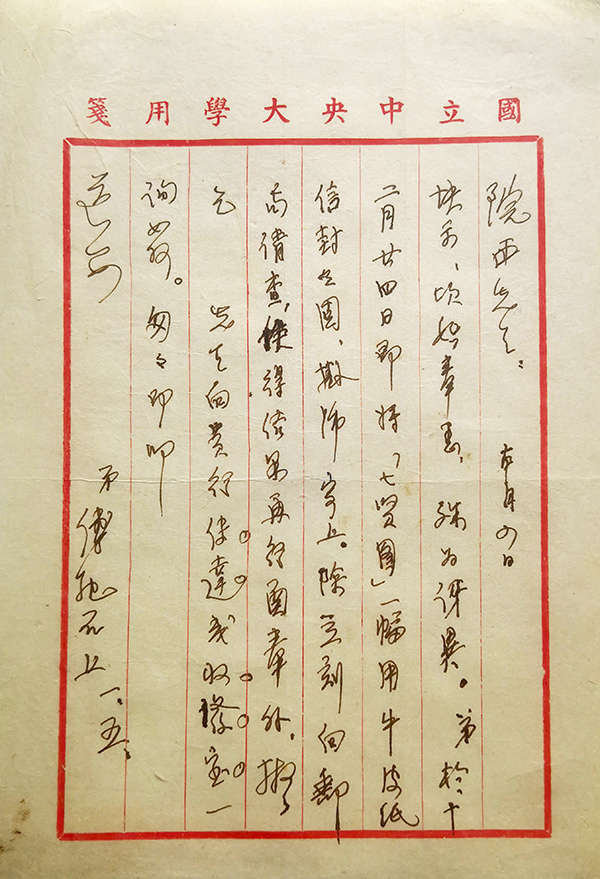 國立中央大學用箋
院西先生：　本月四日
快示、頃始奉悉、殊為訝異。弟於十
二月廿四日即將「七賢圖」一幅用牛皮紙
信封包固、掛號寄上。除立刻向郵
局備查，俟得結果再行函奉外，擬
乞　先生向貴行傳達或收發室一
詢如何。匆匆即叩
道安
弟傅抱石上　一、五、